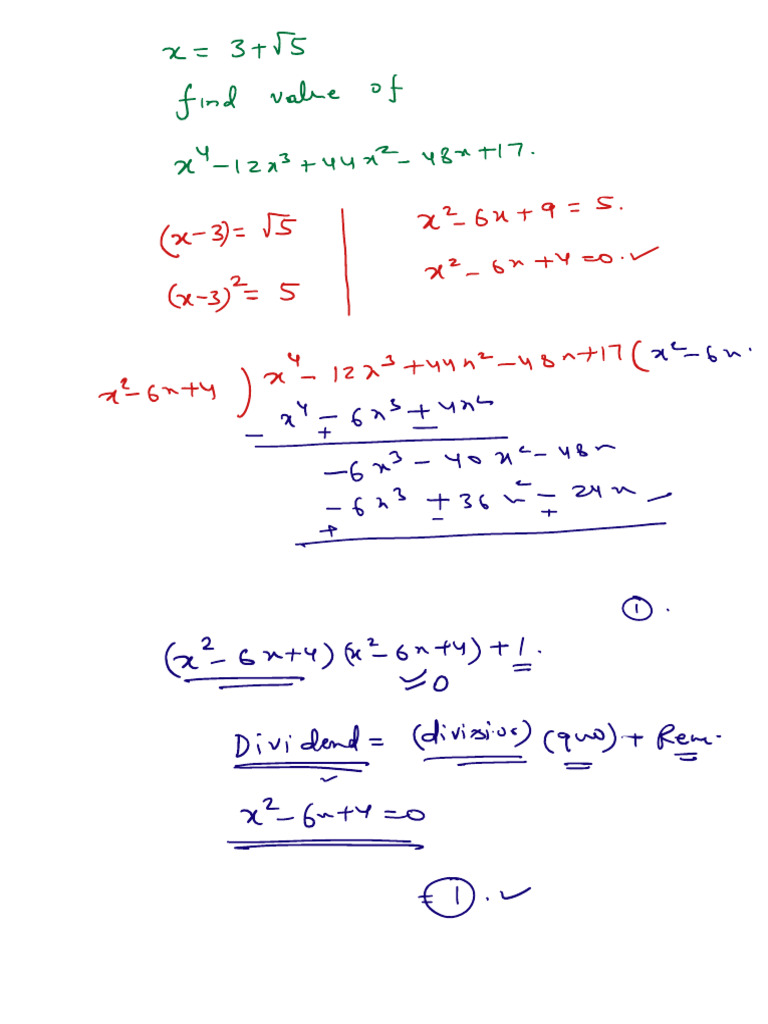 x = 3+√5
find value of
x⁴ – 12x³ + 44x² – 48x + 17.
(x-3) = √5
(x-3)² = 5
x² – 6x + 9 = 5.
x² – 6x + 4 = 0. ✓
x² – 6x + 4 ) x⁴ – 12x³ + 44x² – 48x + 17 ( x² – 6x.
x⁴ – 6x³ + 4x²
– + –
–6x³ – 40x² – 48x
–6x³ + 36x² – 24x
+ – +
①.
(x² – 6x + 4) (x² – 6x + 4) + 1.
= 0
Dividend = (divisior) (quo) + Rem.
x² – 6x + 4 = 0
= ①. ✓